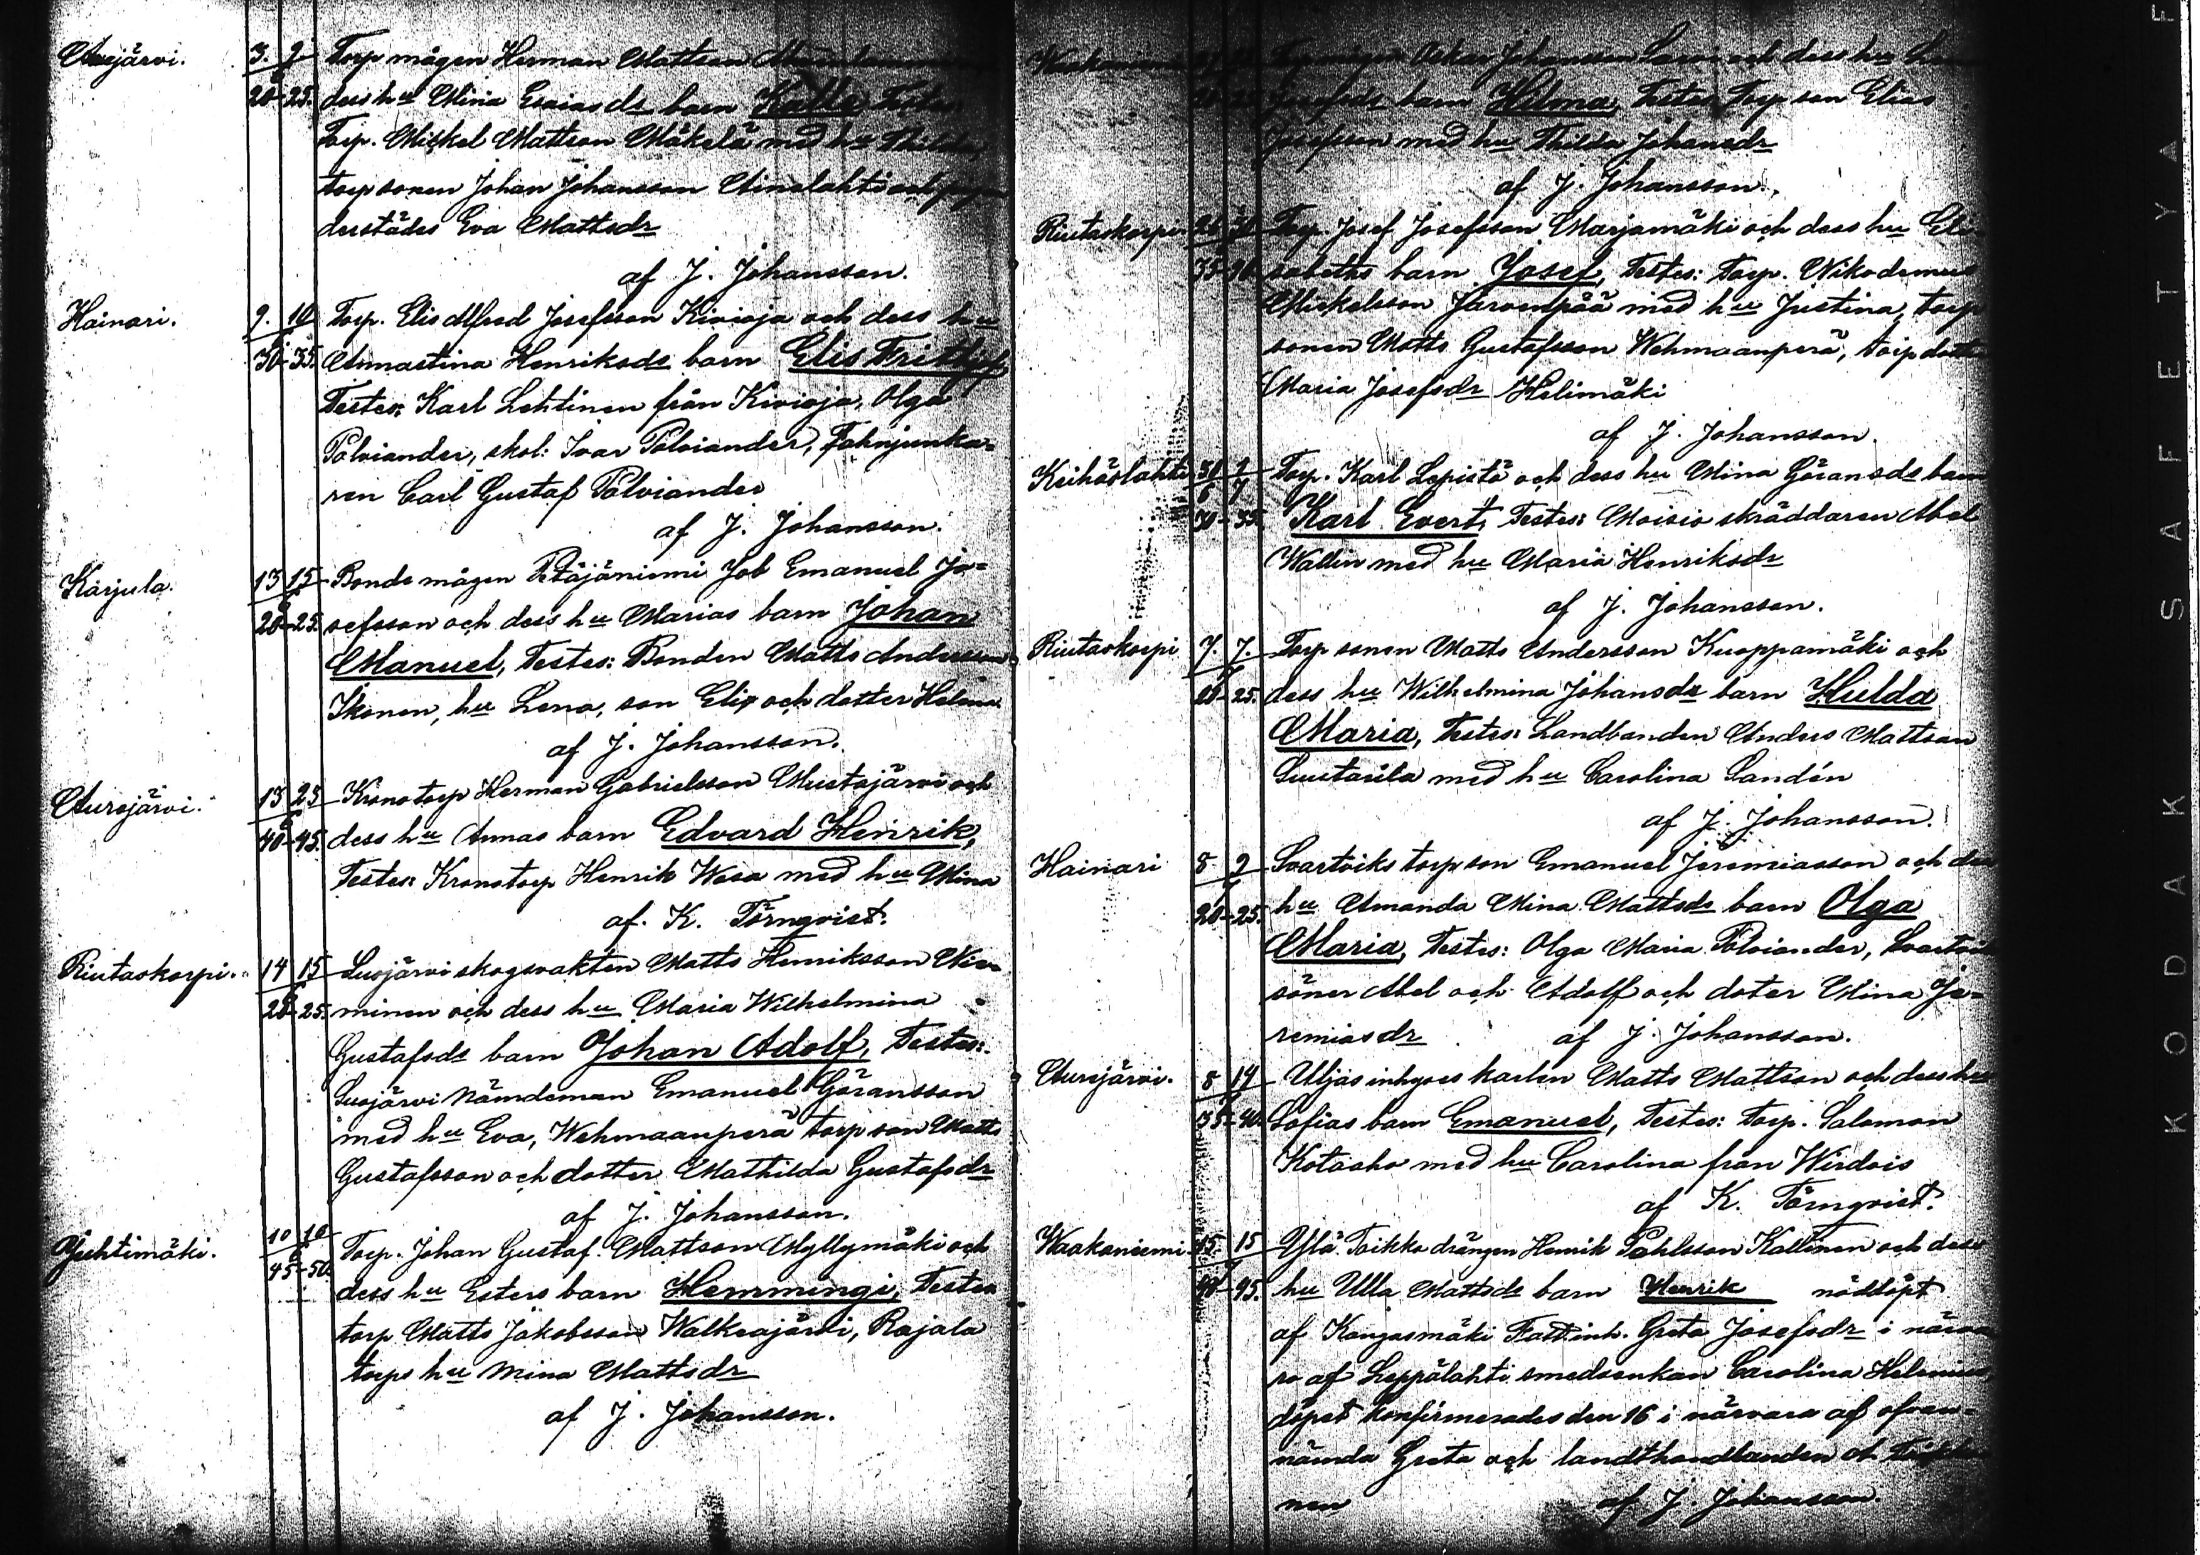 Aurejärvi. 3. 9 Torp mågen Herman Mattson
6
20-25. dess hu Mina Esaiasdr barn Kalle, Testes
Torp. Mickel Mattson Mäkelä med hu
torpsonen Johan Johansson Ainolahti
derstädes Eva Mattsdr
af J. Johansson.
Hainari. 9. 10 Torp. Elis Alfred Josefsson Kivioja och dess hu
6
30-35. Annastina Henriksdr barn Elis Frithjof
Testes: Karl Lehtinen från Kivioja, Olga
Polviander, skol: Ivar Polviander, Fahnjunka=
ren Carl Gustaf Polviander
af J. Johansson.
Karjula. 13 15 Bonde mågen Petäjäniemi Job Emanuel Jo=
6
20-25. sefsson och dess hu Marias barn Johan
Manuel, Testes: Bonden Matts Andersson
Ikonen, hu Lena, son Elis och dotter Helena
af J. Johansson.
Aurejärvi. 13 23 Kronotorp Herman Gabrielsson Mustajärvi och
6
40-45. dess hu Annas barn Edvard Henrik,
Testes: Kronotorp Henrik Wasa med hu Mina
af. K. Törnqvist.
Riutaskorpi. 14 15 Susjärvi skogsvakten Matts Henriksson Nie=
6
20-25. minen och dess hu Maria Wilhelmina
Gustafsdr barn Johan Adolf, Testes:
Susjärvi Nämdeman Emanuel Göransson
med hu Eva, Wehmaanperä torpson Matts
Gustafsson och dotter Mathilda Gustafsdr
af J. Johansson.
Juhtimäki. 10 10 Torp. Johan Gustaf Mattson Myllymäki och
6
45-50. dess hu Esters barn Hemmingi, Testes
torp Matts Jakobsson Walkeajärvi, Rajala
torps hu Mina Mattsdr
af J. Johansson.
Torpmågen Oskar Johansson och dess hu
Josefsdr barn Helena, Testes Torpson Elias
Josefsson med hu Thilda Johansdr
af J. Johansson.
Riutaskorpi Torp. Josef Josefsson Marjamäki och dess hu Eli
sabeths barn Josef, Testes: Torp. Nikodemus
Mickelsson Järvenpää med hu Justina, torp
sonen Matts Gustafsson Wehmaanperä, torpdott
Maria Josefsdr Helimäki
af J. Johansson.
Keihäslahti Torp. Karl Lepistö och dess hu Mina Göransdr barn
30-35. Karl Evert, Testes: Moisio skräddaren Abel
Wallin med hu Maria Henriksdr
af J. Johansson.
Riutaskorpi 7. 7. Torpsonen Matts Andersson Kuoppamäki och
7
20-25. dess hu Wilhelmina Johansdr barn Hulda
Maria, Testes: Landbonden Anders Mattson
med hu Carolina Sandén
af J. Johansson.
Hainari 8 9 Svartviks torpson Emanuel Jeremiasson och dess
7
20-25. hu Amanda Mina Mattsdr barn Olga
Maria, Testes: Olga Maria Polviander,
söner Abel och Adolf och doter Mina Je=
remiasdr af J. Johansson.
Aurejärvi. 8 14 Uljas inhyses karlen Matts Mattson och dess hu
7
35-40. Sofias barn Emanuel, Testes: Torp. Salomon
Kotaaho med hu Carolina från Wirdois
af K. Törnqvist.
Waakaniemi 15. 15 Ylä Poikko drängen Henrik Pahlsson Kallinen och dess
7
40-45. hu Ulla Mattsdr barn Henrik nöddöpt
af Kangasmäki Fattinh. Greta Josefsdr i närva
ro af Leppälahti smedsenkan Carolina
döpet konfirmerades den 16 i närvara af ofvan=
nämda Greta och landthandlanden A.
nen af J. Johansson.
KODAK SAFETY A F